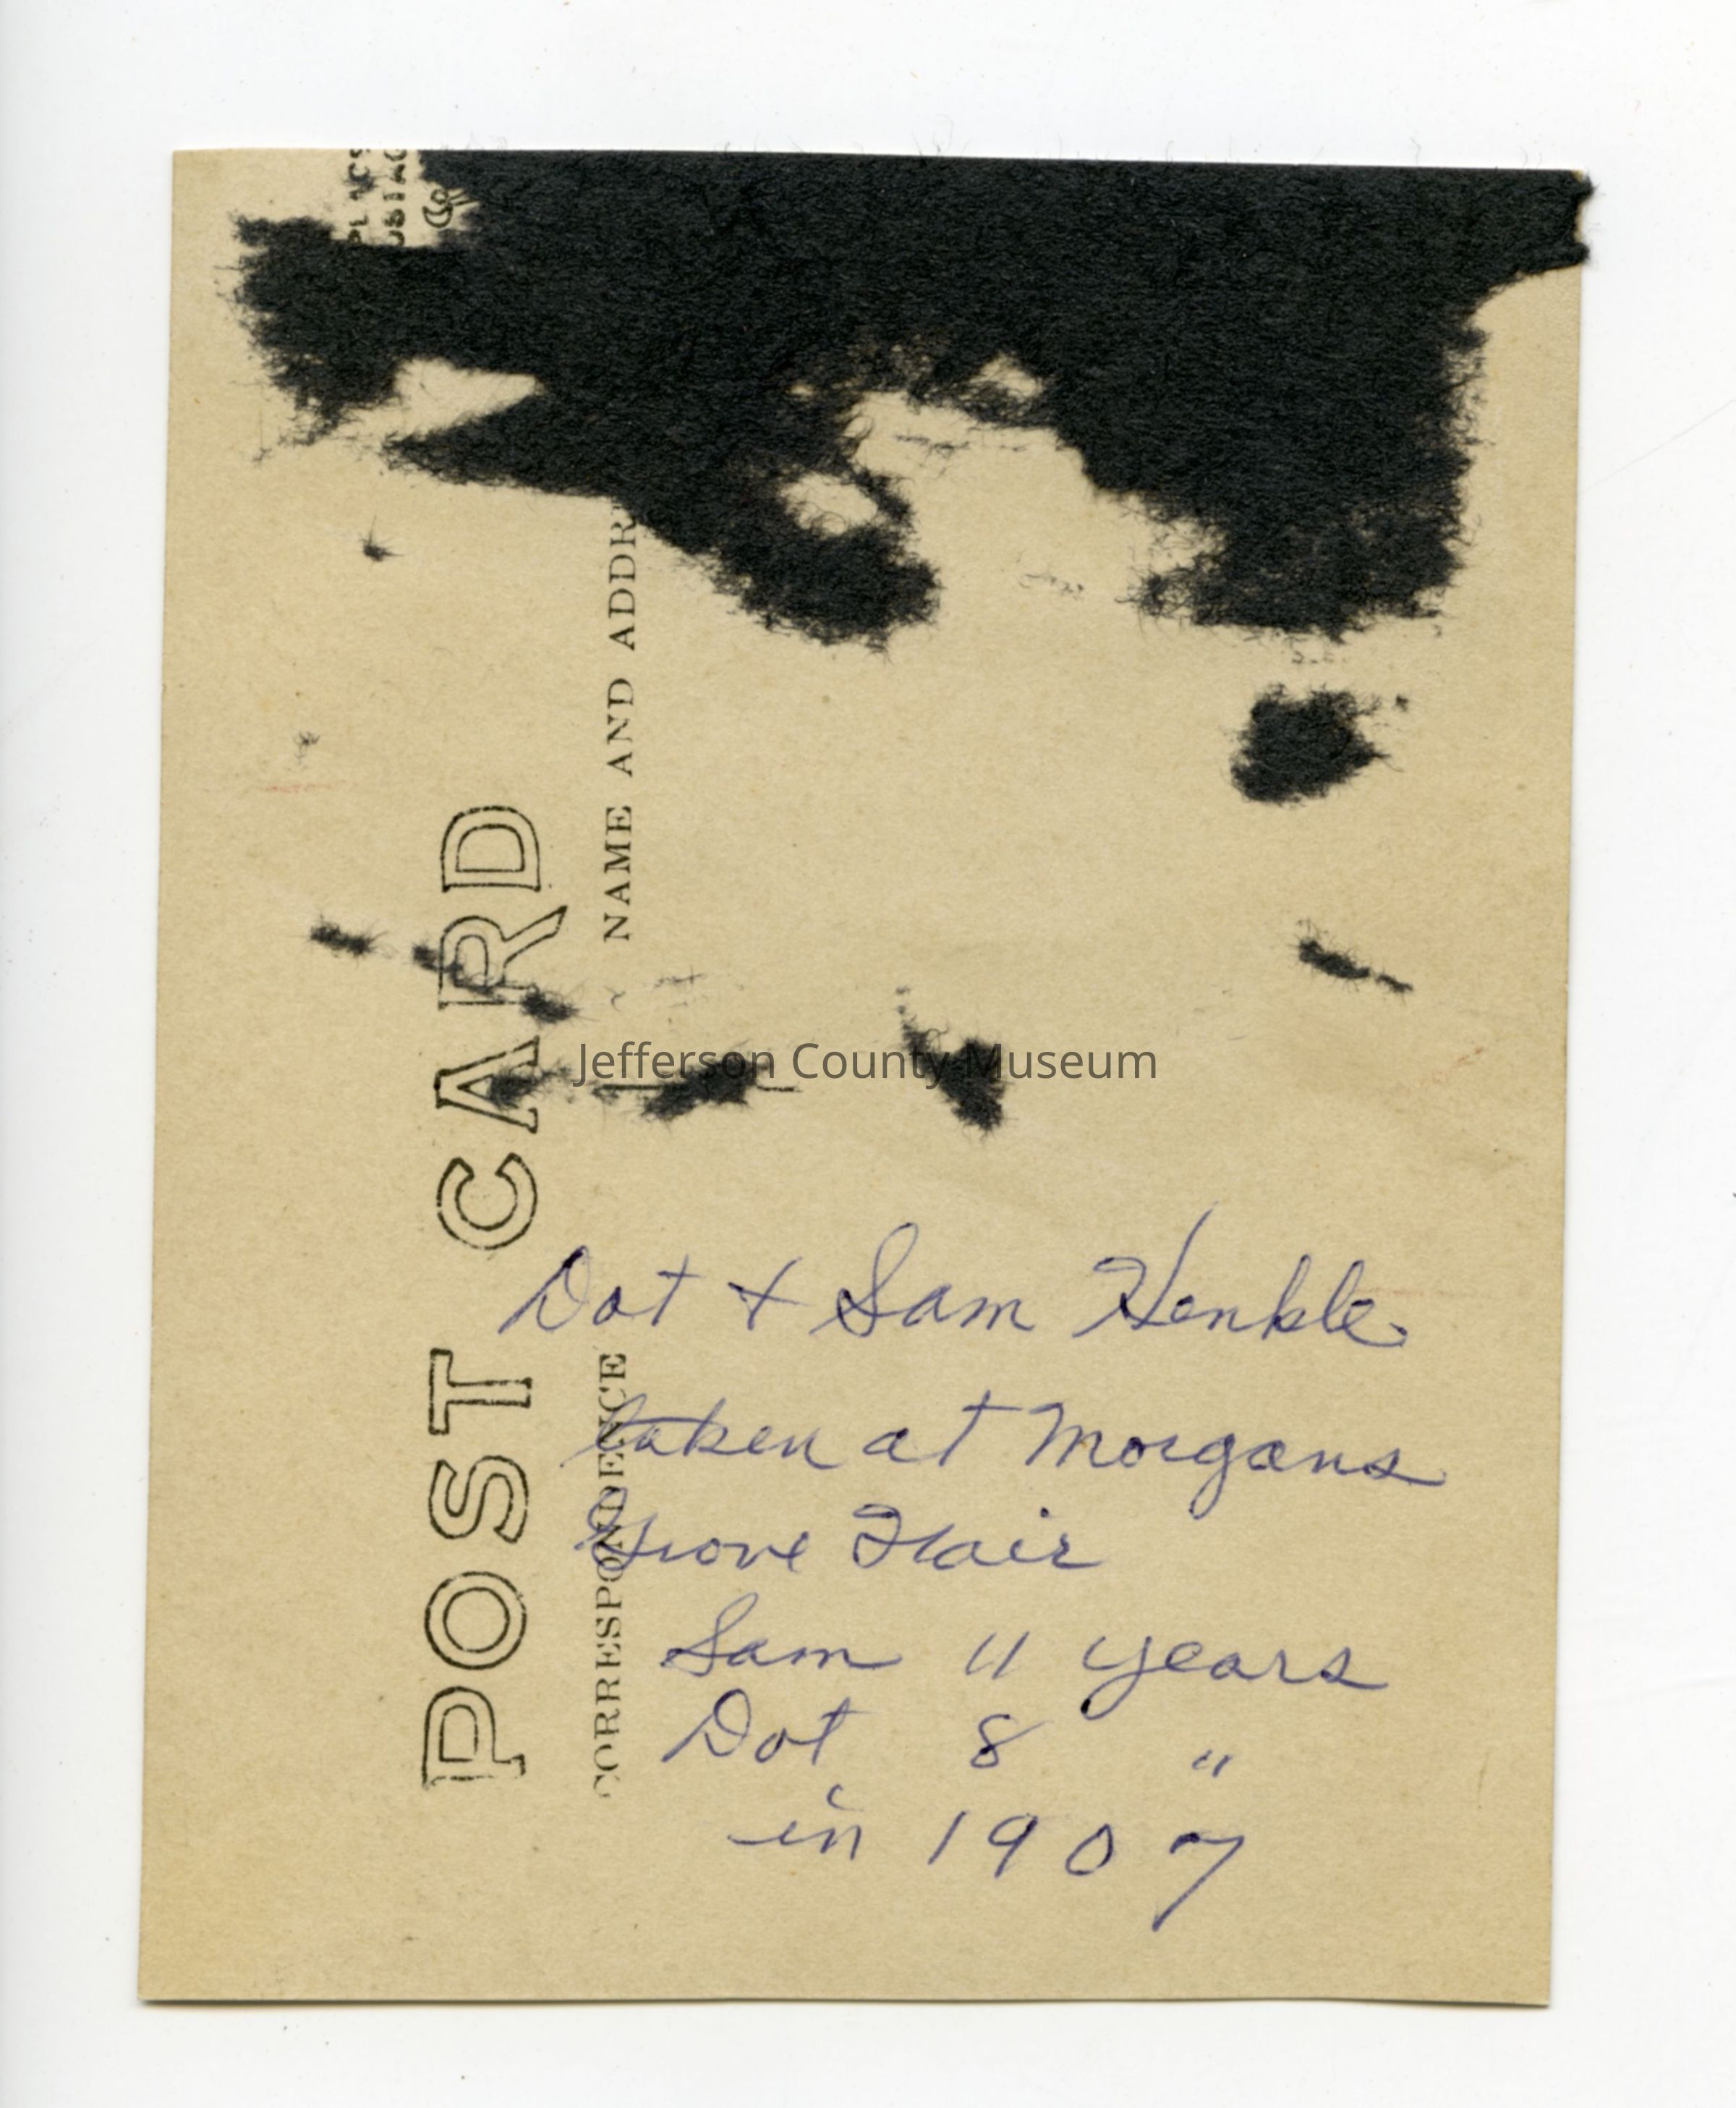 POST CARD
CORRESPONDENCE
NAME AND ADDR
Jefferson County Museum
Dot + Sam Henkle
taken at Morgans
Grove Fair
Sam 11 years
Dot 8 "
in 1907